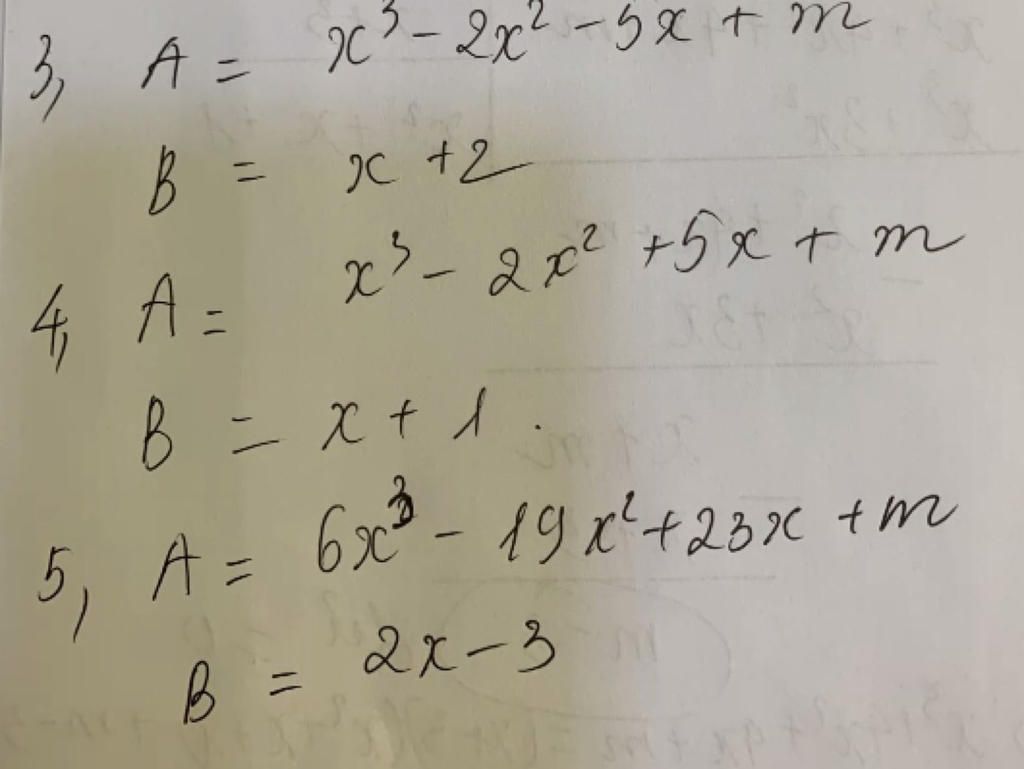 3, A = x³ - 2x² - 5x + m
B = x + 2
4, A = x³ - 2x² + 5x + m
B = x + 1.
5, A = 6x³ - 19x² + 23x + m
B = 2x - 3